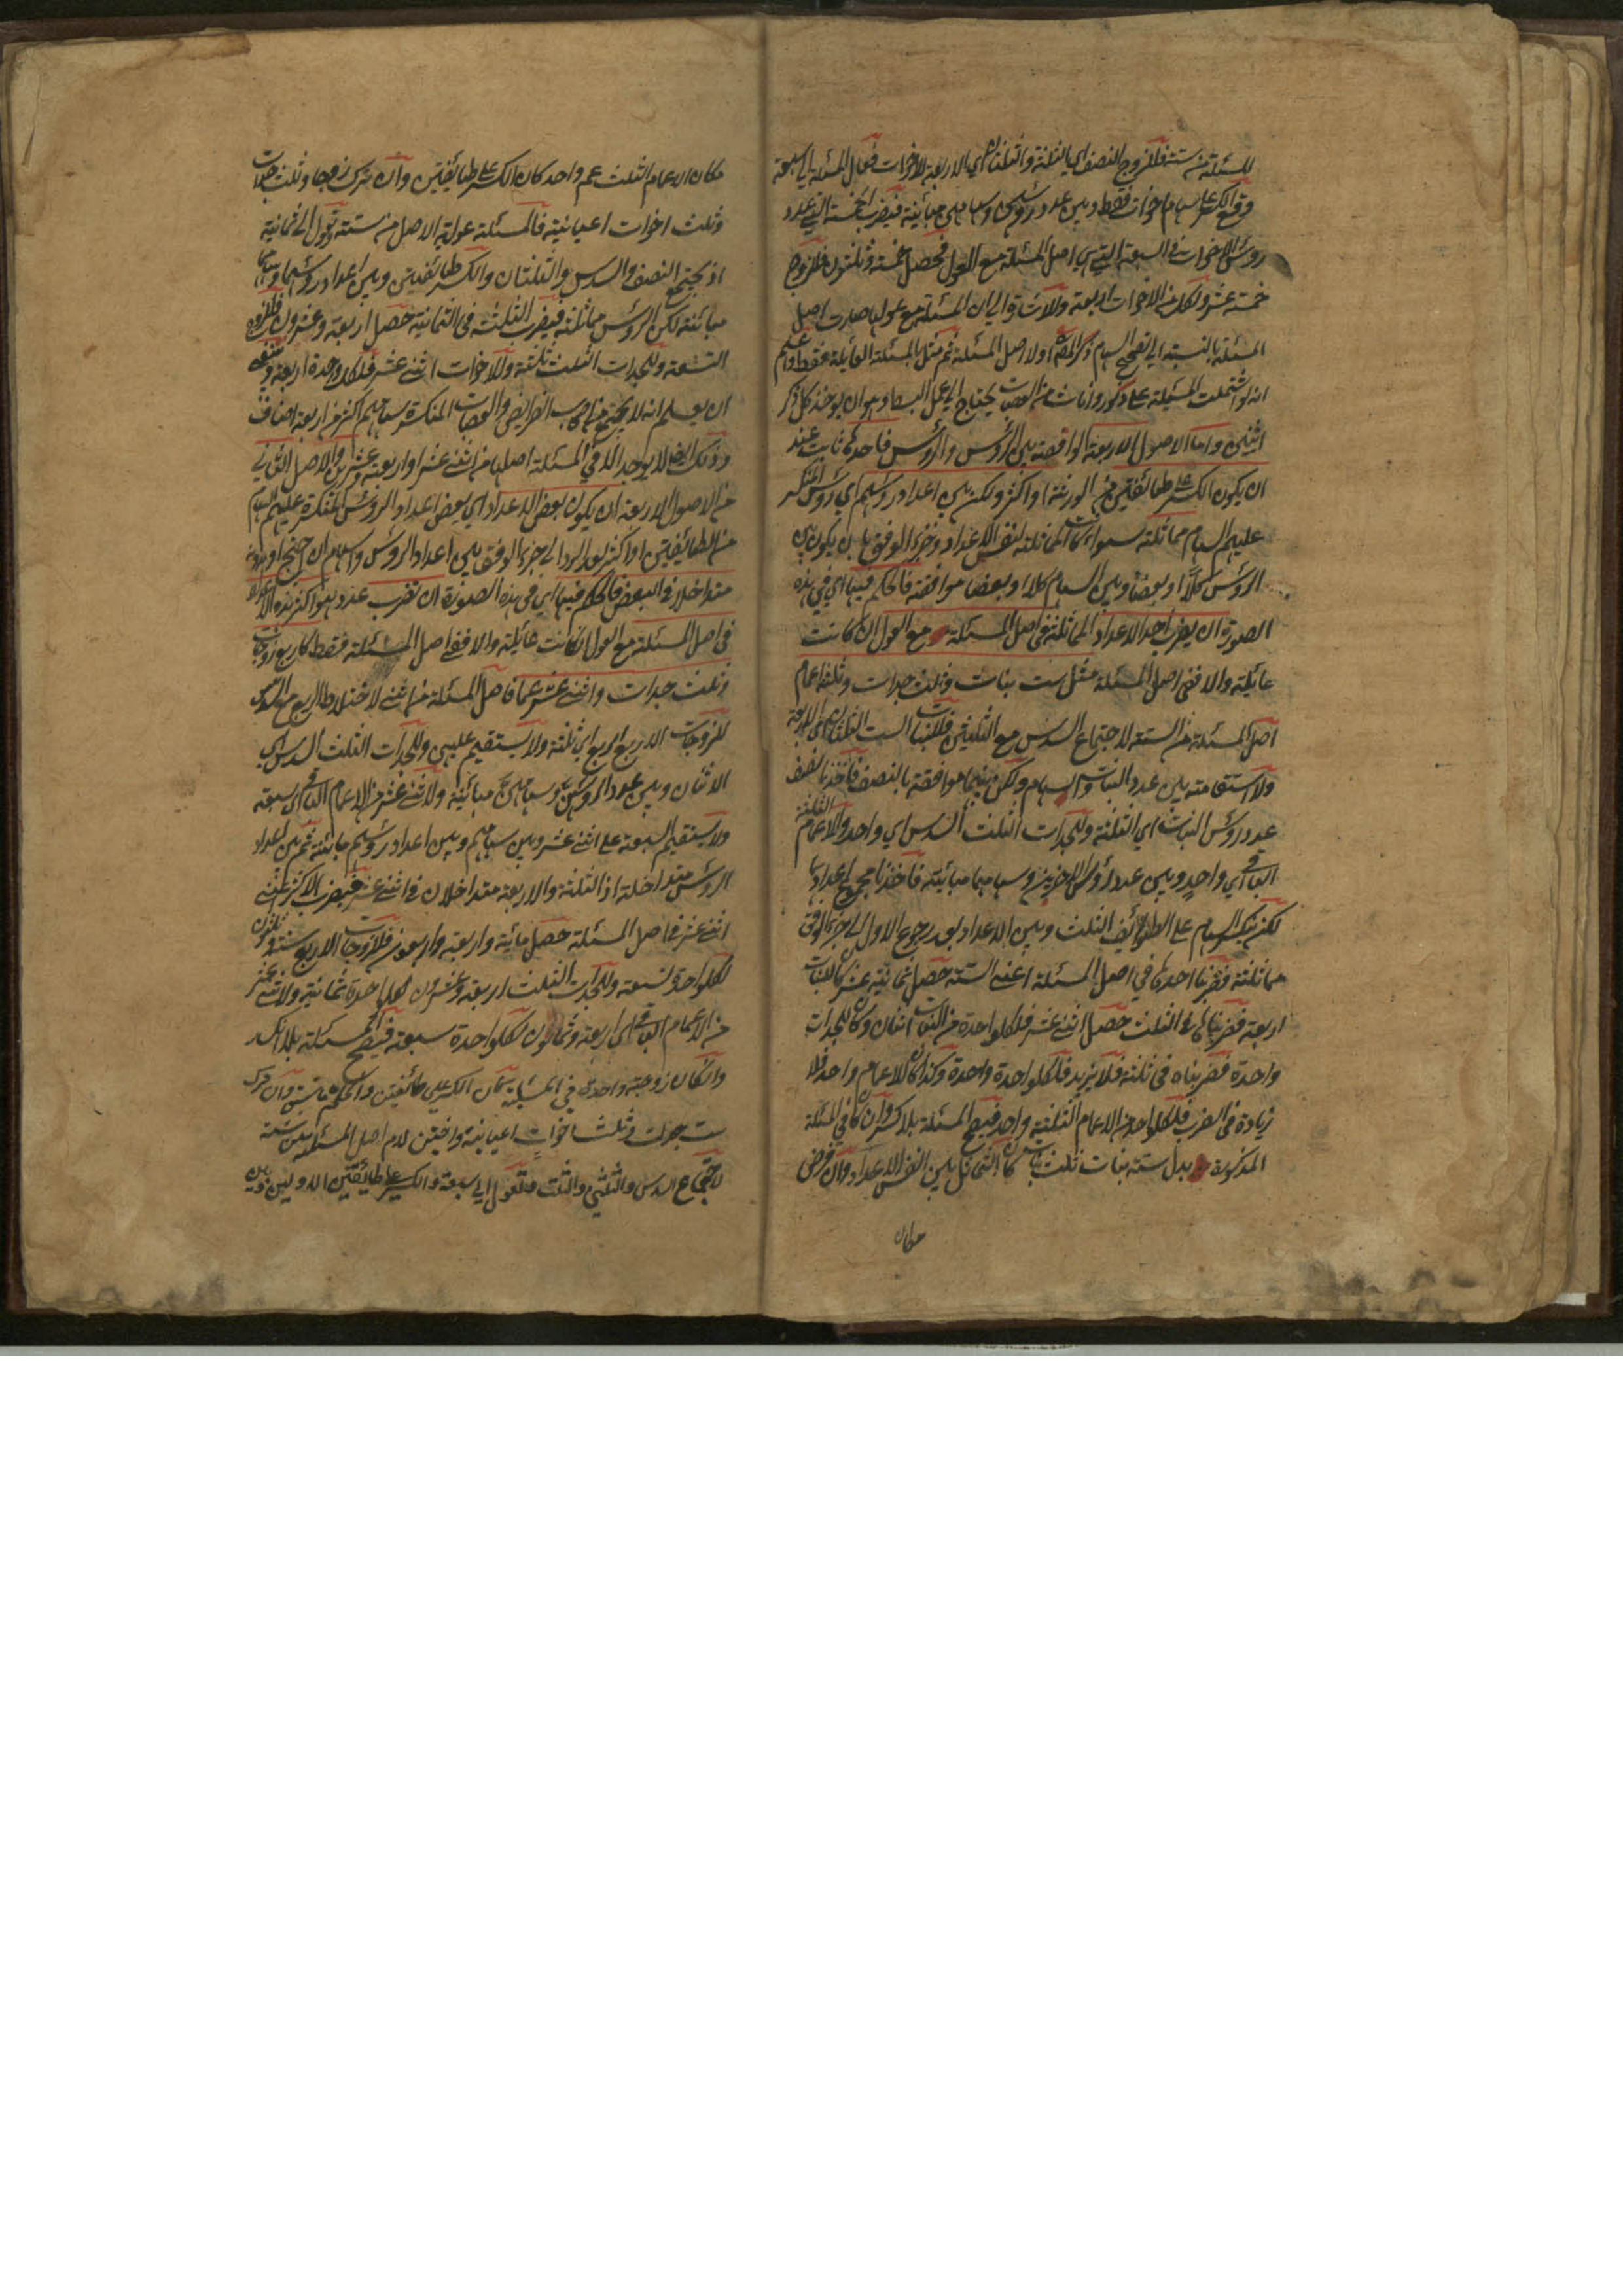 المسئلة من ستة فللزوج النصف اي الثلثة والثلثان اي الاربعة للاخوات فتعال المسئلة الي سبعة
وقع الكسر على سهام اخوات فقط وبين عدد رؤسهن وسهامهن مباينة فيضرب الخمسة التي عدد
رؤس الاخوات في السبعة التي هي اصل المسئلة مع العول فحصل خمسة وثلثون فللزوج
خمسة عشر ولكل من الاخوات اربعة ان المسئلة مع عولها صارت اصل
المسئلة بالنسبة الي تصحيح السهام ذكر المصنف اولا اصل المسئلة ثم مثل بالمسئلة العائلة فقط واعلم
انه لو اشتملت المسئلة على ذكور واناث من العصبات يحتاج الي عمل البسط وهو ان يوخذ كل ذكر
اثنين واما الاصول الاربعة الواقعة بين الرؤس والرؤس فاحدها ثابت عند
ان يكون الكسر على طائفتين من الورثة او اكثر ولكن بين اعداد رؤسهم اي رؤس المنكسر
عليهم السهام مماثلة سواء كانت المماثلة لنفس الاعداد وجزء الوفق بان يكون بين
الرؤس كلا او بعضا وبين السهام كلا او بعضا موافقة فالحكم فيها اي في هذه
الصورة ان يضرب احد الاعداد المماثلة في اصل المسئلة مع العول ان كانت
عائلة والا ففي اصل المسئلة مثل ست بنات وثلث جدات وثلثة اعمام
اصل المسئلة من الستة لاجتماع السدس مع الثلثين فللبنات الست الثلثان اي الاربعة
ولا استقامة بين عدد البنات والسهام ولكن بينهما موافقة بالنصف فاخذنا نصف
عدد رؤس البنات اي الثلثة وللجدات الثلث السدس اي واحد وللاعمام الثلثة
الباقي اي واحد وبين عدد رؤس الاخريين وسهامهما مباينة فاخذنا مجموع اعدادهما
لكن ينكسر السهام على الطوائف الثلث وبين الاعداد بعد رجوع الاول الي جزء الوفق
مماثلة فضربنا احدها في اصل المسئلة اعني الستة حصل ثمانية عشر كان للبنات
اربعة فضربناها في الثلث حصل اثني عشر فلكل واحدة من البنات اثنان وكان للجدات
واحدة فضربناه في ثلثة فلا يزيد فلكل واحدة واحدة وكذا كان للاعمام واحد فلا
زيادة في الضرب فلكل واحد من الاعمام الثلثة واحد فيصح المسئلة بلا كسر وان كان في المسئلة
المذكورة بدل ستة بنات ثلث بنات كان التماثل بين انفس الاعداد وان فرض
مكان
مكان الاعمام الثلث عم واحد كان الكسر على طائفتين وان ترك زوجا وثلث جدات
وثلث اخوات اعيانية فالمسئلة عولية الاصل من ستة وتعول الي ثمانية
اذ يجتمع النصف والسدس والثلثان والكسر على طائفتين وبين اعداد رؤسهما وسهامهما
مباينة لكن بين الرؤس مماثلة فيضرب الثلثة في الثمانية حصل اربعة وعشرون فللزوج
التسعة وللجدات الثلث ثلثة وللاخوات اثني عشر فلكل واحدة اربعة وينبغي
ان يعلم انه لا يجتمع من اصحاب الفرائض والعصبات المنكسرة سهامهم اكثر من اربعة اصناف
وذلك ايضا لا يوجد الا في المسئلة اصلها من اثني عشر او اربعة وعشرين والاصل الثاني
من الاصول الاربعة ان يكون بعض الاعداد اي بعض اعداد الرؤس المنكسرة عليهم السهام
من الطائفتين او اكثر بعد الرد الي جزء الوفق بين اعداد الرؤس والسهام ان احتيج او بدونه
متداخلا في البعض فالحكم فيها اي في هذه الصورة ان تضرب عدد هو اكثر هذه الاعداد
في اصل المسئلة مع العول ان كانت عائلة والا ففي اصل المسئلة فقط كاربع زوجات
وثلث جدات واثني عشر عما فاصل المسئلة من اثني لاختلاط الربع مع السدس
للزوجات الاربع الربع اي ثلثة ولا يستقيم عليهن وللجدات الثلث السدس اي
الاثنان وبين عدد رؤسهن وسهامهن مباينة ولاثني عشر من الاعمام الباقي اي سبعة
ولا يستقيم السبعة على اثني عشر وبين سهامهم وبين اعداد رؤسهم مباينة ثم بين اعداد
الرؤس متداخلة اذ الثلثة والاربعة متداخلان في اثني عشر فيضرب الاكثر اعني
اثني عشر في اصل المسئلة حصل مائة واربعة واربعون فللزوجات الاربع ستة وثلثون
لكل واحدة تسعة وللجدات الثلث اربعة وعشرون لكل واحدة ثمانية ولاثني عشر
من الاعمام الباقي اي اربعة وثمانون لكل واحدة سبعة فيصح المسئلة بلا انكسار
وان كان زوجة واحدة في المسئلة كان الكسر على طائفتين والحكم ما سبق وان ترك
ست جدات وثلث اخوات اعيانية واختين لام اصل المسئلة من ستة
لاجتماع السدس والثلثين والثلث وتعول الي سبعة والكسر على طائفتين الاوليين وبين